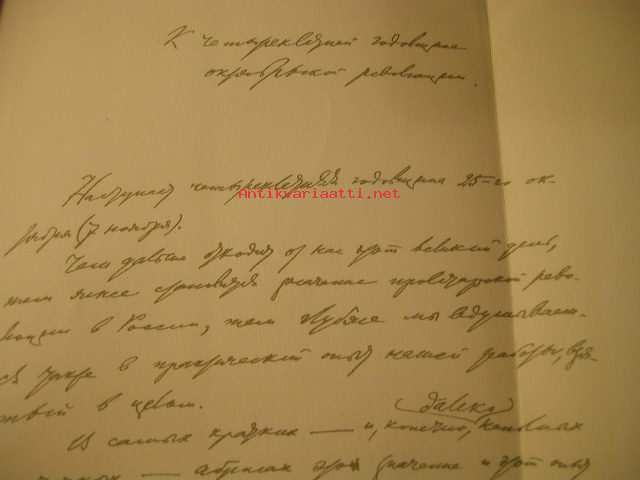 К четырехлетней годовщине
октябрьской революции.
Antikvariaatti.net
Наступает четырехлетняя годовщина 25-го ок-
тября (7 ноября).
Чем дальше отходит от нас этот великий день,
тем яснее становится значение пролетарской рево-
люции в России, тем глубже мы вдумываем-
ся также в практический опыт нашей работы, взя-
тый в целом.
далеко
В самых кратких — и, конечно, неполных
набросках это значение и этот опыт